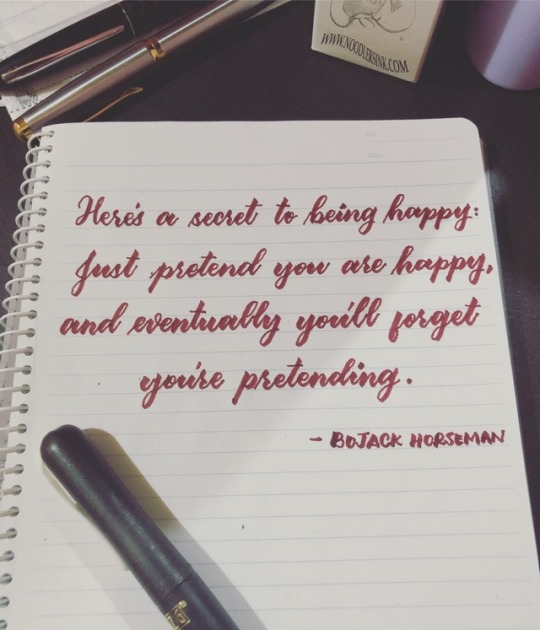 WWW.NOODLERSINK.COM
Here's a secret to being happy:
Just pretend you are happy,
and eventually you'll forget
you're pretending.
- BOJACK HORSEMAN